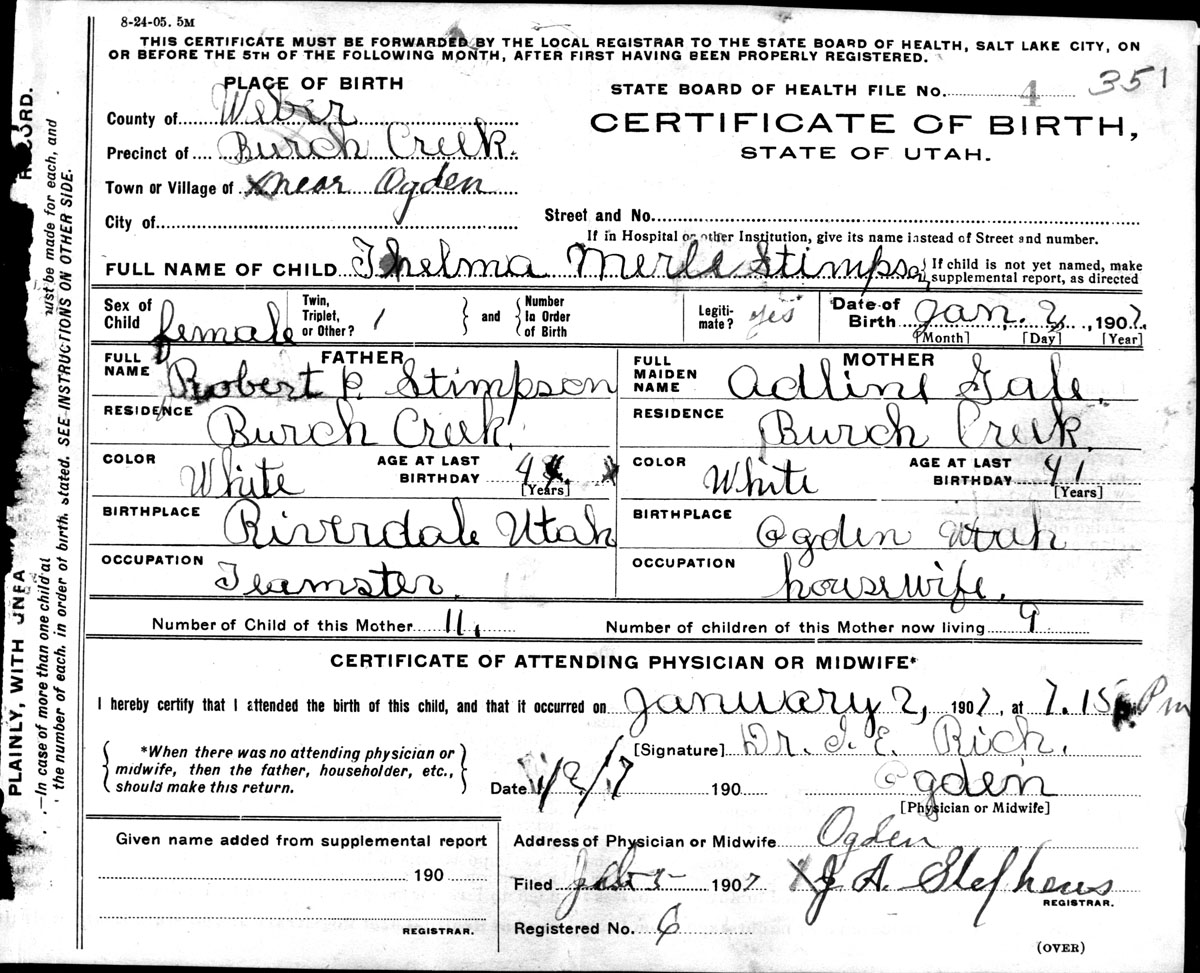 8-24-05. 5M
THIS CERTIFICATE MUST BE FORWARDED BY THE LOCAL REGISTRAR TO THE STATE BOARD OF HEALTH, SALT LAKE CITY, ON
OR BEFORE THE 5TH OF THE FOLLOWING MONTH, AFTER FIRST HAVING BEEN PROPERLY REGISTERED.
PLACE OF BIRTH
STATE BOARD OF HEALTH FILE No. 4 351
County of Weber
CERTIFICATE OF BIRTH,
STATE OF UTAH.
Precinct of Burch Creek.
Town or Village of near Ogden
City of
Street and No.
If in Hospital or other Institution, give its name instead of Street and number.
FULL NAME OF CHILD Thelma Merle Stimpson
If child is not yet named, make
supplemental report, as directed
Sex of Child female
Twin, Triplet, or Other? 1
and
Number In Order of Birth
Legiti-mate? yes
Date of Birth Jan. 2, 1907.
[Month] [Day] [Year]
FATHER
FULL NAME Robert P. Stimpson
MOTHER
FULL MAIDEN NAME Adline Gale.
RESIDENCE Burch Creek.
RESIDENCE Burch Creek.
COLOR White
AGE AT LAST BIRTHDAY 4
[Years]
COLOR White
AGE AT LAST BIRTHDAY 41
[Years]
BIRTHPLACE Riverdale Utah
BIRTHPLACE Ogden Utah
OCCUPATION Teamster.
OCCUPATION housewife.
Number of Child of this Mother 11.
Number of children of this Mother now living 9
CERTIFICATE OF ATTENDING PHYSICIAN OR MIDWIFE*
I hereby certify that I attended the birth of this child, and that it occurred on January 2, 1907, at 7.15 P m
*When there was no attending physician or
midwife, then the father, householder, etc.,
should make this return.
[Signature] Dr. I. E. Rich.
Date 190 Ogden
[Physician or Midwife]
Given name added from supplemental report
190
REGISTRAR.
Address of Physician or Midwife Ogden
Filed Feb 5 1907 J. A. Stephens
REGISTRAR.
Registered No. 6
(OVER)
PLAINLY, WITH RECORD.
—In case of more than one child at must be made for each, and
the number of each, in order of birth, stated. SEE INSTRUCTIONS ON OTHER SIDE.